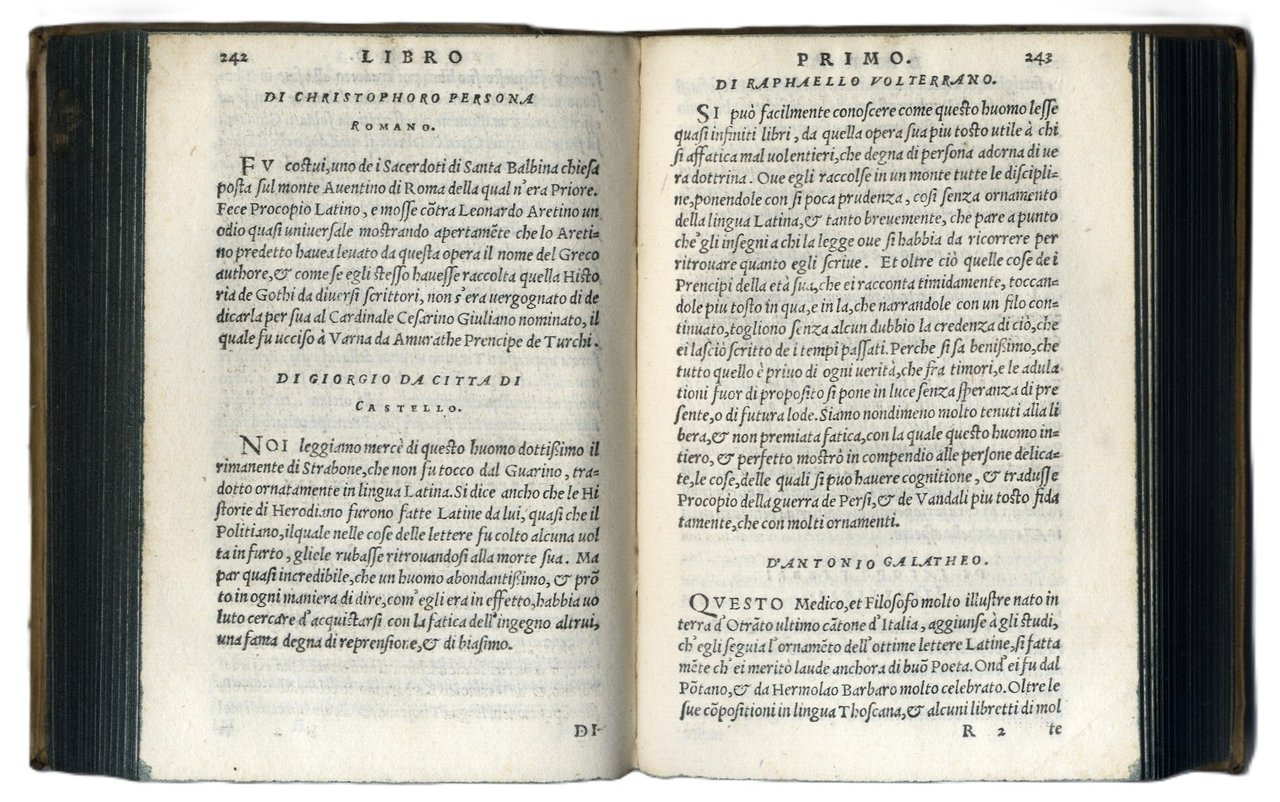 242 LIBRO
DI CHRISTOPHORO PERSONA
ROMANO.
FV costui, uno de i Sacerdoti di Santa Balbina chiesa
posta sul monte Auentino di Roma della qual n'era Priore.
Fece Procopio Latino, e mosse cõtra Leonardo Aretino un
odio quasi uniuersale mostrando apertamẽte che lo Areti=
no predetto hauea leuato da questa opera il nome del Greco
authore, & come se egli stesso hauesse raccolta quella Histo
ria de Gothi da diuersi scrittori, non s'era uergognato di de
dicarla per sua al Cardinale Cesarino Giuliano nominato, il
quale fu ucciso à Varna da Amurathe Prencipe de Turchi.
DI GIORGIO DA CITTA DI
CASTELLO.
NOI leggiamo mercè di questo huomo dottissimo il
rimanente di Strabone, che non fu tocco dal Guarino, tra=
dotto ornatamente in lingua Latina. Si dice ancho che le Hi
storie di Herodiano furono fatte Latine da lui, quasi che il
Politiano, ilquale nelle cose delle lettere fu colto alcuna uol
ta in furto, gliele rubasse ritrouandosi alla morte sua. Ma
par quasi incredibile, che un huomo abondantissimo, & prõ
to in ogni maniera di dire, com' egli era in effetto, habbia uo
luto cercare d'acquistarsi con la fatica dell'ingegno altrui,
una fama degna di reprensiore, & di biasimo.
DI
PRIMO. 243
DI RAPHAELLO VOLTERRANO.
SI può facilmente conoscere come questo huomo lesse
quasi infiniti libri, da quella opera sua piu tosto utile à chi
si affatica mal uolentieri, che degna di persona adorna di ue
ra dottrina. Oue egli raccolse in un monte tutte le discipli=
ne, ponendole con si poca prudenza, cosi senza ornamento
della lingua Latina, & tanto breuemente, che pare a punto
che' gli insegni a chi la legge oue si habbia da ricorrere per
ritrouare quanto egli scriue. Et oltre ciò quelle cose de i
Prencipi della età sua, che ei racconta timidamente, toccan=
dole piu tosto in qua, e in la, che narrandole con un filo con=
tinuato, togliono senza alcun dubbio la credenza di ciò, che
ei lasciò scritto de i tempi passati. Perche si sa benissimo, che
tutto quello è priuo di ogni uerità, che fra timori, e le adula
tioni fuor di proposito si pone in luce senza speranza di pre
sente, o di futura lode. Siamo nondimeno molto tenuti alia li
bera, & non premiata fatica, con la quale questo huomo in=
tiero, & perfetto mostrò in compendio alle persone delica=
te, le cose, delle quali si può hauere cognitione, & tradusse
Procopio della guerra de Persi, & de Vandali piu tosto fida
tamente, che con molti ornamenti.
D'ANTONIO GALATHEO.
QVESTO Medico, et Filosofo molto illustre nato in
terra d'Otrãto ultimo cãtone d'Italia, aggiunse à gli studi,
ch' egli seguia l'ornamẽto dell' ottime lettere Latine, si fatta
mẽte ch' ei meritò laude anchora di buõ Poeta. Ond' ei fu dal
Põtano, & da Hermolao Barbaro molto celebrato. Oltre le
sue cõpositioni in lingua Thoscana, & alcuni libretti di mol
R 2 te